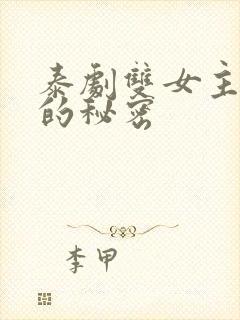 泰劇雙女主
的秘密
李甲